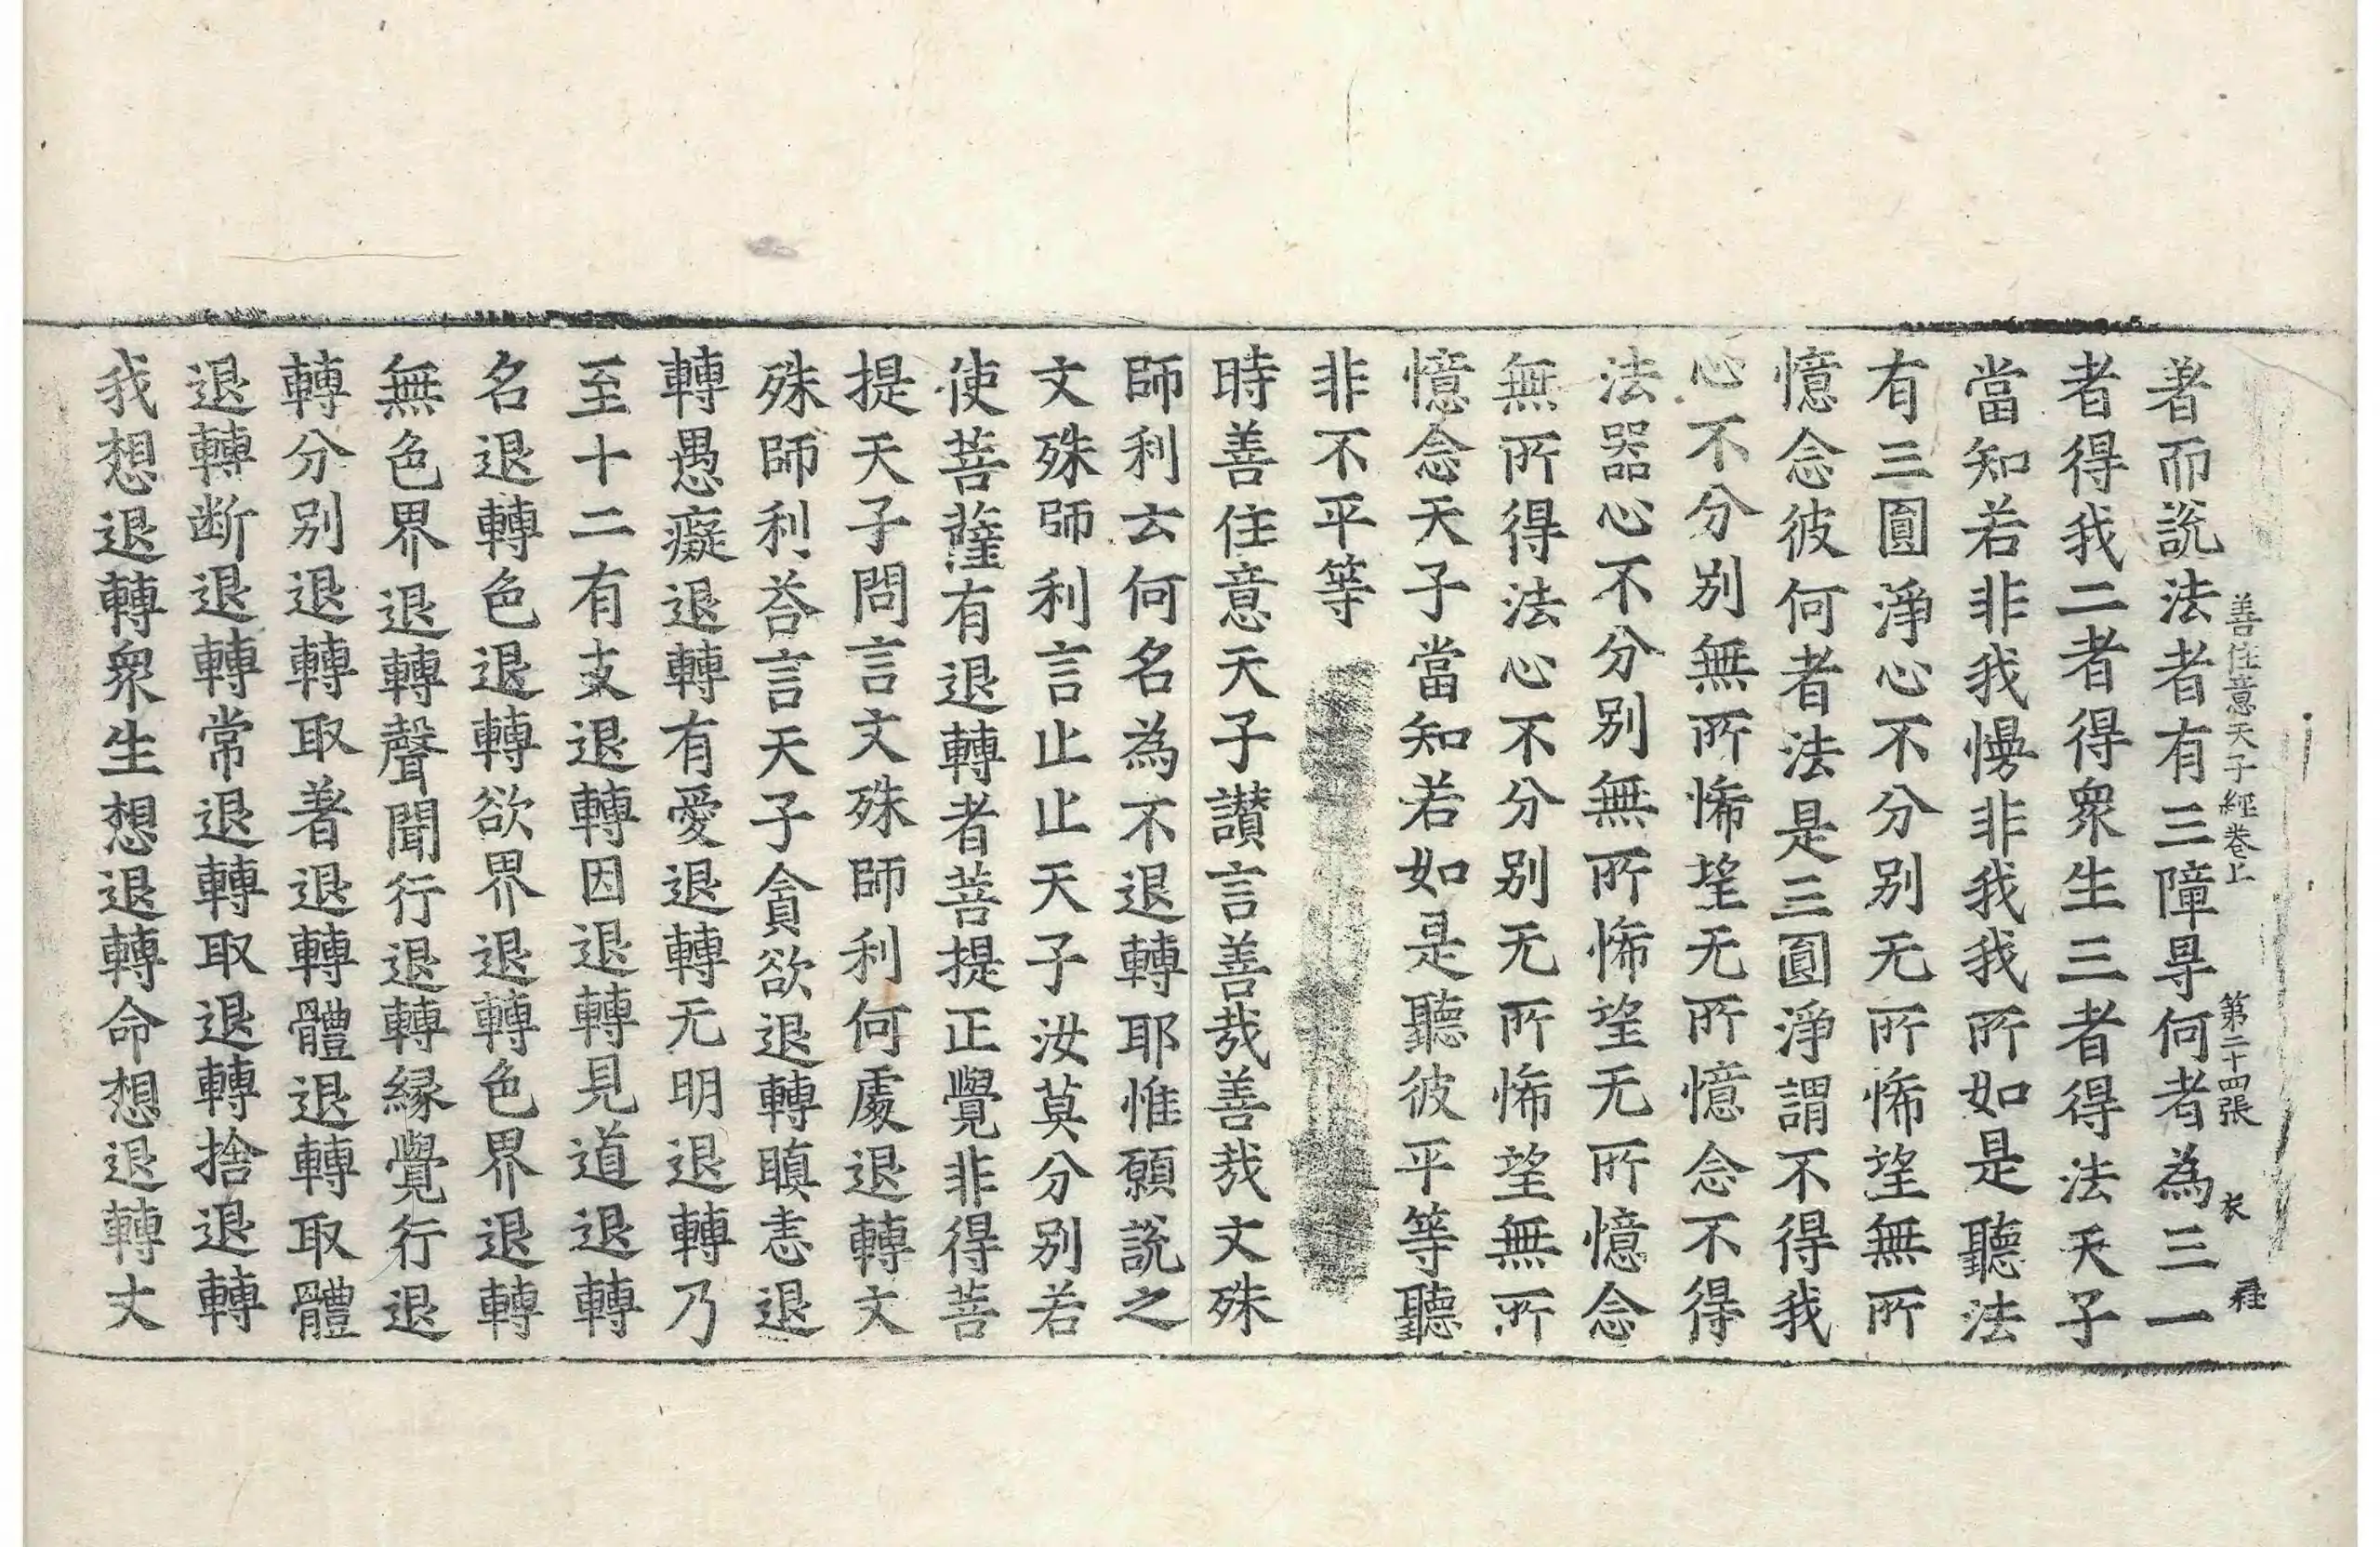 善住意天子經卷上　第二十四張　衣
著而說法者有三障㝵何者為三一
者得我二者得眾生三者得法天子
當知若非我慢非我我所如是聽法
有三圓淨心不分別无所悕望無所
憶念彼何者法是三圓淨謂不得我
心不分別無所悕望无所憶念不得
法器心不分別無所悕望无所憶念
無所得法心不分別无所悕望無所
憶念天子當知若如是聽彼平等聽
非不平等
時善住意天子讃言善哉善哉文殊
師利云何名為不退轉耶惟願說之
文殊師利言止止天子汝莫分別若
使菩薩有退轉者菩提正覺非得菩
提天子問言文殊師利何處退轉文
殊師利荅言天子貪欲退轉瞋恚退
轉愚癡退轉有愛退轉无明退轉乃
至十二有支退轉因退轉見道退轉
名退轉色退轉欲界退轉色界退轉
無色界退轉聲聞行退轉縁覺行退
轉分別退轉取著退轉體退轉取體
退轉断退轉常退轉取退轉捨退轉
我想退轉眾生想退轉命想退轉丈